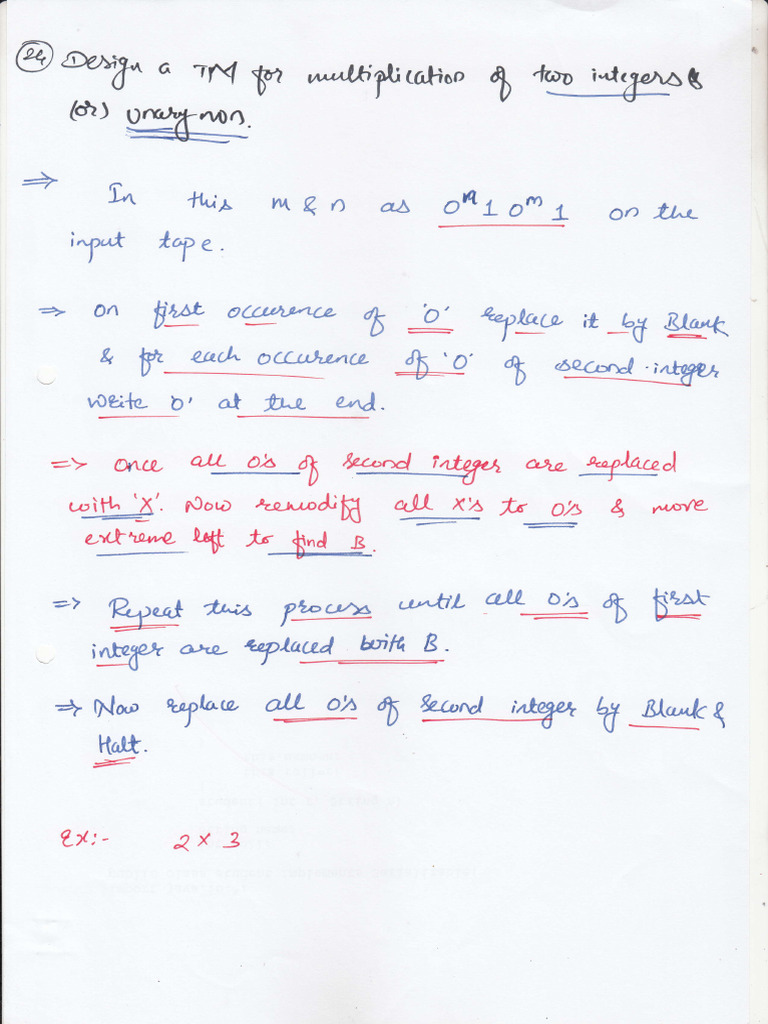 24 Design a TM for multiplication of two integers
(or) Unary nos.
⇒ In this m & n as 0ᵐ 1 0ᵐ 1 on the
input tape.
⇒ on first occurence of 'O' replace it by Blank
& for each occurence of 'O' of second integer
write 'O' at the end.
=> Once all O's of second integer are replaced
with 'X'. Now remodify all X's to O's & move
extreme left to find B.
=> Repeat this process until all O's of first
integer are replaced with B.
=> Now replace all O's of second integer by Blank &
Halt.
Ex:- 2 x 3